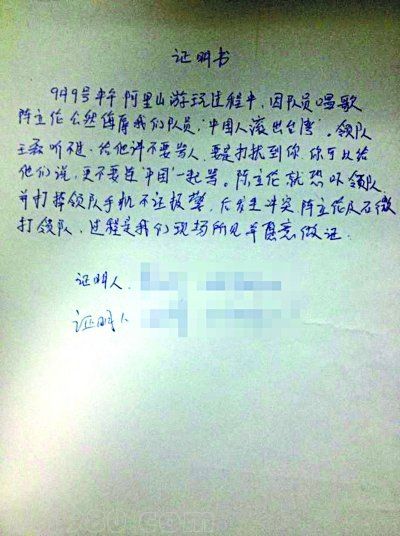 证明书
949号车 阿里山游玩过程中，因队员唱歌
陈立伦公然侮辱我们队员，"中国人滚出台湾"。领队
王磊听不进，给他讲不要骂人，要是打扰到你，你可以给
他们说，更不要连"中国"一起骂。陈立伦就恐吓领队，
并打掉领队手机不让报警，后发生冲突陈立伦及石
打领队，过程是我们现场所见并愿意做证.
证明人.
证明人